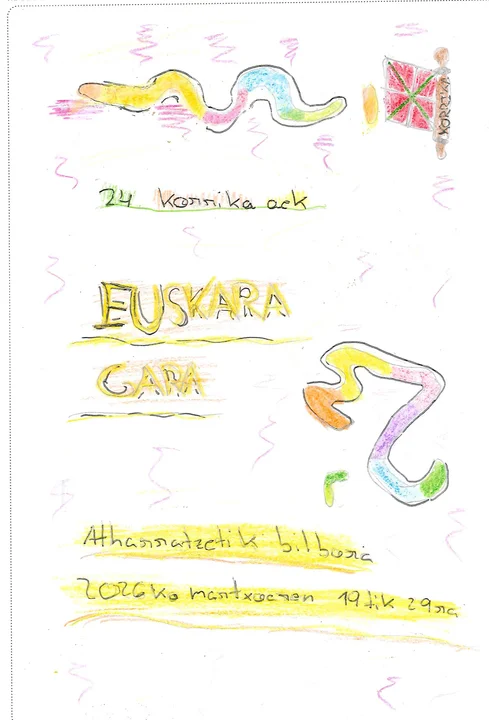 KORRIKA
24 Korrika aek
EUSKARA
GARA
Atharratzetik bilbora
2026ko martxoaren 19tik 29ra